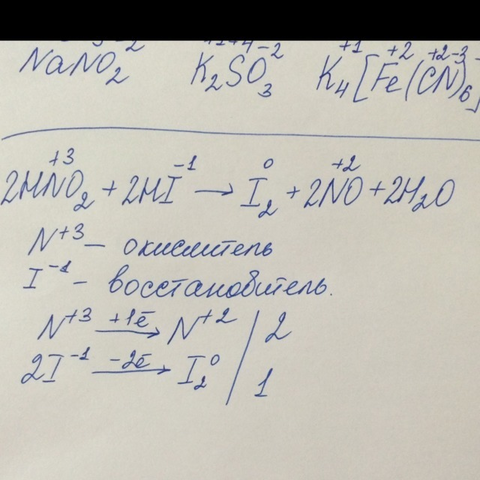 NaNO₂ K₂SO₃ K₄[Fe(CN)₆]
2HNO₂ + 2HI → I₂ + 2NO + 2H₂O
N⁺³ – окислитель
I⁻¹ – восстановитель.
N⁺³ +1ē → N⁺² | 2
2I⁻¹ –2ē → I₂⁰ | 1